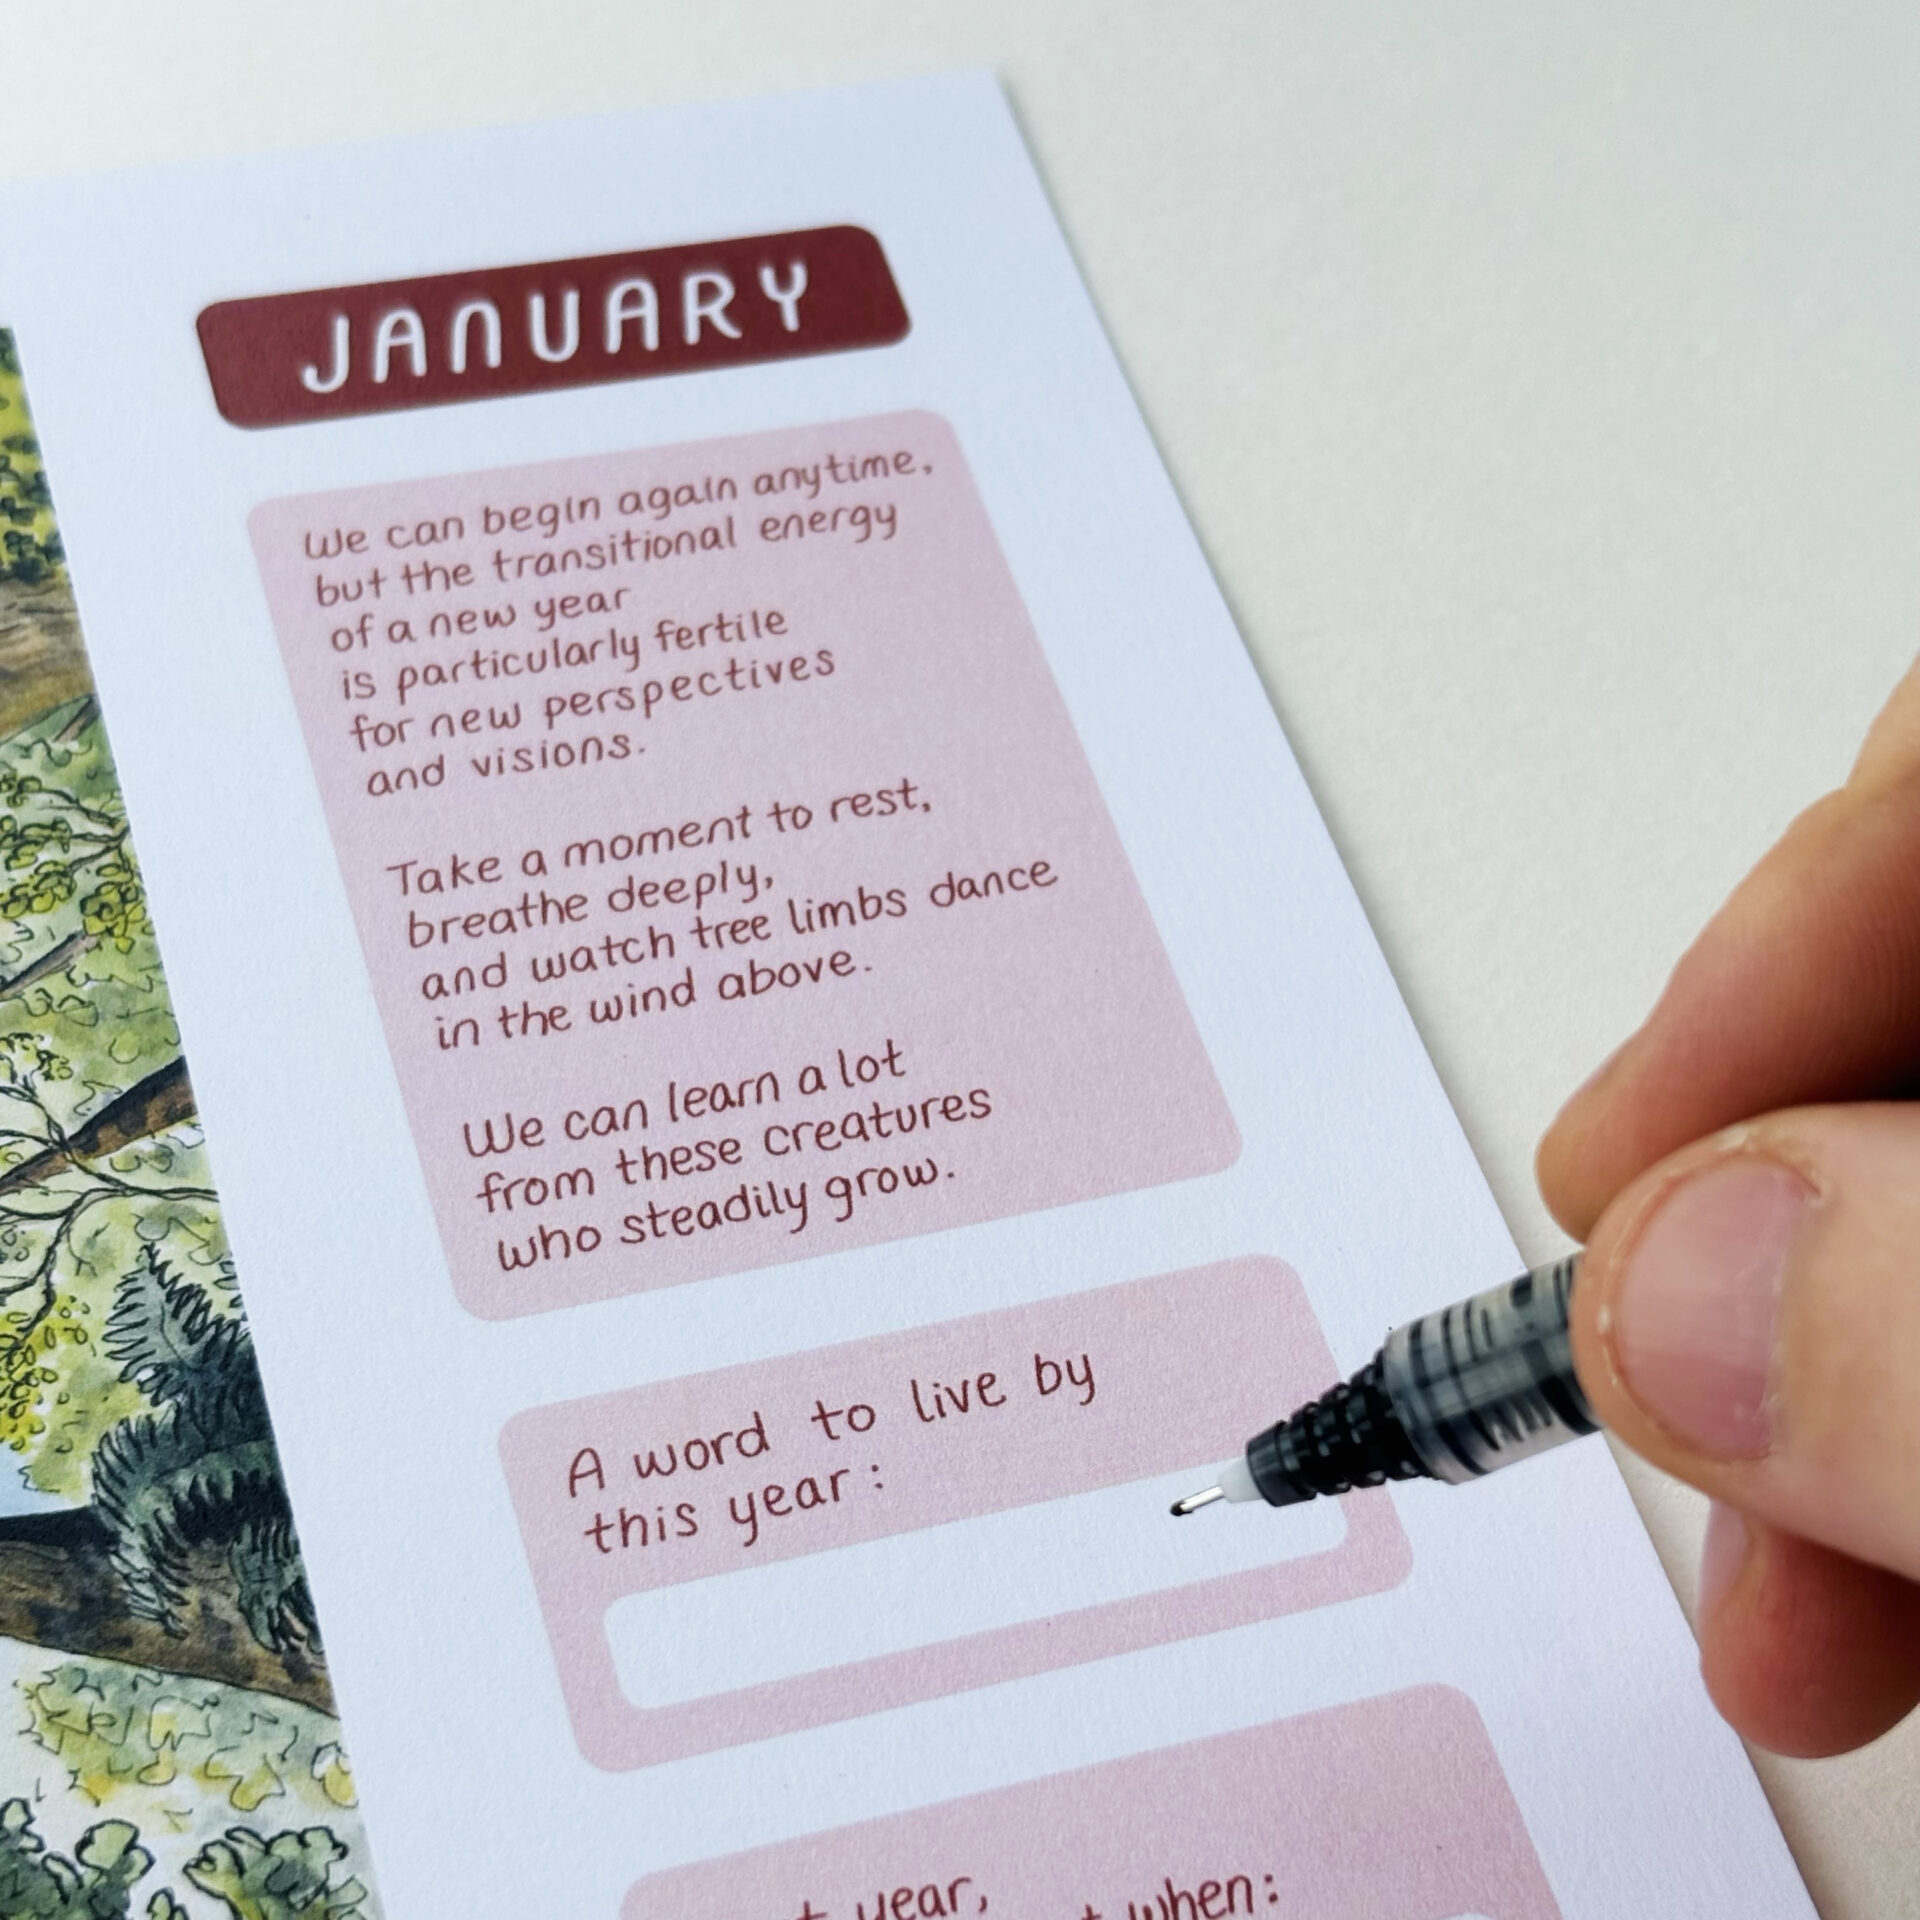 JANUARY
We can begin again anytime,
but the transitional energy
of a new year
is particularly fertile
for new perspectives
and visions.
Take a moment to rest,
breathe deeply,
and watch tree limbs dance
in the wind above.
We can learn a lot
from these creatures
who steadily grow.
A word to live by
this year:
year,
when: